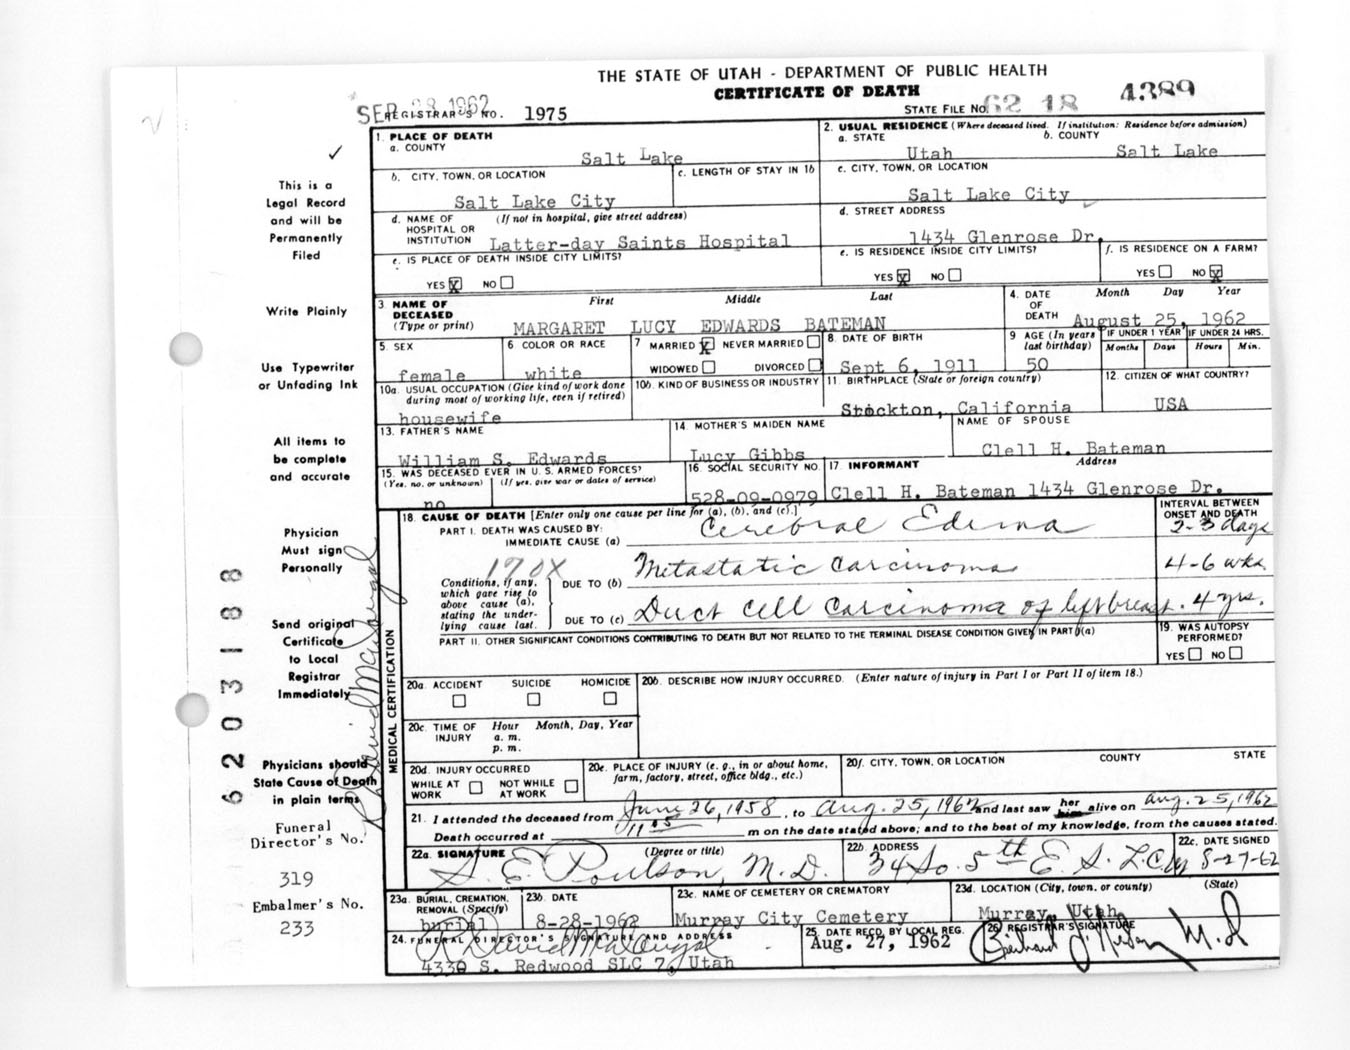 THE STATE OF UTAH - DEPARTMENT OF PUBLIC HEALTH
CERTIFICATE OF DEATH
SEP 28 1962
REGISTRAR'S NO. 1975
STATE FILE NO. 62 18 4389
1. PLACE OF DEATH
a. COUNTY
Salt Lake
2. USUAL RESIDENCE (Where deceased lived. If institution: Residence before admission)
a. STATE b. COUNTY
Utah Salt Lake
b. CITY, TOWN, OR LOCATION
Salt Lake City
c. LENGTH OF STAY IN 1b
c. CITY, TOWN, OR LOCATION
Salt Lake City
d. NAME OF HOSPITAL OR INSTITUTION (If not in hospital, give street address)
Latter-day Saints Hospital
d. STREET ADDRESS
1434 Glenrose Dr.
e. IS PLACE OF DEATH INSIDE CITY LIMITS?
YES X NO
e. IS RESIDENCE INSIDE CITY LIMITS?
YES X NO
f. IS RESIDENCE ON A FARM?
YES NO X
3. NAME OF DECEASED (Type or print)
First Middle Last
MARGARET LUCY EDWARDS BATEMAN
4. DATE OF DEATH Month Day Year
August 25, 1962
5. SEX
female
6 COLOR OR RACE
white
7 MARRIED X NEVER MARRIED
WIDOWED DIVORCED
8. DATE OF BIRTH
Sept 6, 1911
9 AGE (In years last birthday)
50
IF UNDER 1 YEAR
Months Days
IF UNDER 24 HRS.
Hours Min.
10a. USUAL OCCUPATION (Give kind of work done during most of working life, even if retired)
housewife
10b. KIND OF BUSINESS OR INDUSTRY
11. BIRTHPLACE (State or foreign country)
Stockton, California
12. CITIZEN OF WHAT COUNTRY?
USA
13. FATHER'S NAME
William S. Edwards
14. MOTHER'S MAIDEN NAME
Lucy Gibbs
NAME OF SPOUSE
Clell H. Bateman
15. WAS DECEASED EVER IN U. S. ARMED FORCES?
(Yes, no, or unknown) (If yes, give war or dates of service)
no
16. SOCIAL SECURITY NO.
528-09-0979
17. INFORMANT Address
Clell H. Bateman 1434 Glenrose Dr.
18. CAUSE OF DEATH [Enter only one cause per line for (a), (b), and (c).]
INTERVAL BETWEEN ONSET AND DEATH
PART I. DEATH WAS CAUSED BY:
IMMEDIATE CAUSE (a) Cerebral Edema 2-3 days
170X
Conditions, if any, which gave rise to above cause (a), stating the underlying cause last.
DUE TO (b) Metastatic Carcinoma 4-6 wks.
DUE TO (c) Duct cell carcinoma of left breast. 4 yrs.
PART II. OTHER SIGNIFICANT CONDITIONS CONTRIBUTING TO DEATH BUT NOT RELATED TO THE TERMINAL DISEASE CONDITION GIVEN IN PART I(a)
19. WAS AUTOPSY PERFORMED?
YES NO
MEDICAL CERTIFICATION
20a. ACCIDENT SUICIDE HOMICIDE
20b. DESCRIBE HOW INJURY OCCURRED. (Enter nature of injury in Part I or Part II of item 18.)
20c. TIME OF INJURY Hour Month, Day, Year
a. m.
p. m.
20d. INJURY OCCURRED
WHILE AT WORK NOT WHILE AT WORK
20e. PLACE OF INJURY (e. g., in or about home, farm, factory, street, office bldg., etc.)
20f. CITY, TOWN, OR LOCATION COUNTY STATE
21. I attended the deceased from June 26, 1958, to Aug. 25, 1962 and last saw her him alive on Aug. 25, 1962
Death occurred at 11 05 m on the date stated above; and to the best of my knowledge, from the causes stated.
22a. SIGNATURE (Degree or title)
S. E. Poulson, M.D.
22b. ADDRESS
34 So. 5th E. S.L.City
22c. DATE SIGNED
8-27-62
23a. BURIAL, CREMATION, REMOVAL (Specify)
burial
23b. DATE
8-28-1962
23c. NAME OF CEMETERY OR CREMATORY
Murray City Cemetery
23d. LOCATION (City, town, or county) (State)
Murray, Utah
24. FUNERAL DIRECTOR'S SIGNATURE AND ADDRESS
R David McDougal
4330 S. Redwood SLC 7, Utah
25. DATE RECD. BY LOCAL REG.
Aug. 27, 1962
26. REGISTRAR'S SIGNATURE
M.D
This is a
Legal Record
and will be
Permanently
Filed
Write Plainly
Use Typewriter
or Unfading Ink
All items to
be complete
and accurate
Physician
Must sign
Personally
Send original
Certificate
to Local
Registrar
Immediately
Physicians should
State Cause of Death
in plain terms
Funeral
Director's No.
319
Embalmer's No.
233
R David McDougal
6203188